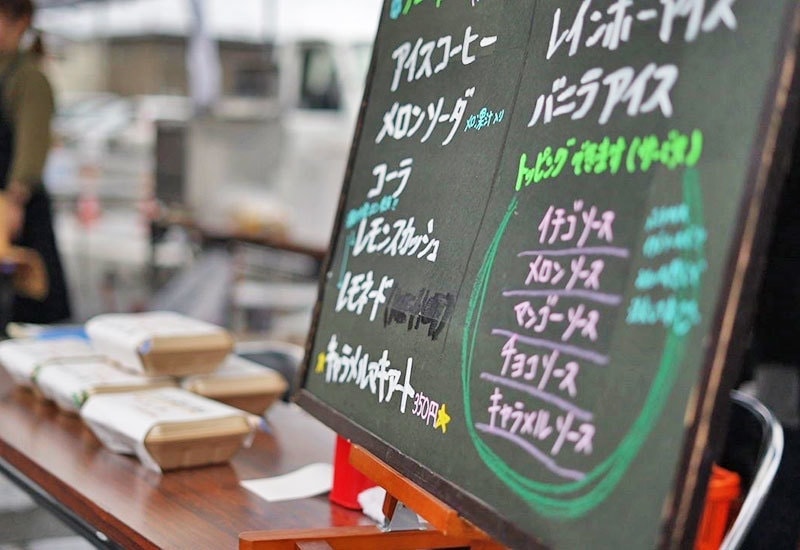 アイスコーヒー
メロンソーダ
コーラ
レモンスカッシュ
レモネード
★キャラメルマキアート 350円★
レインボーアイス
バニラアイス
トッピングできます(サービス)
イチゴソース
メロンソース
マンゴーソース
チョコソース
キャラメルソース